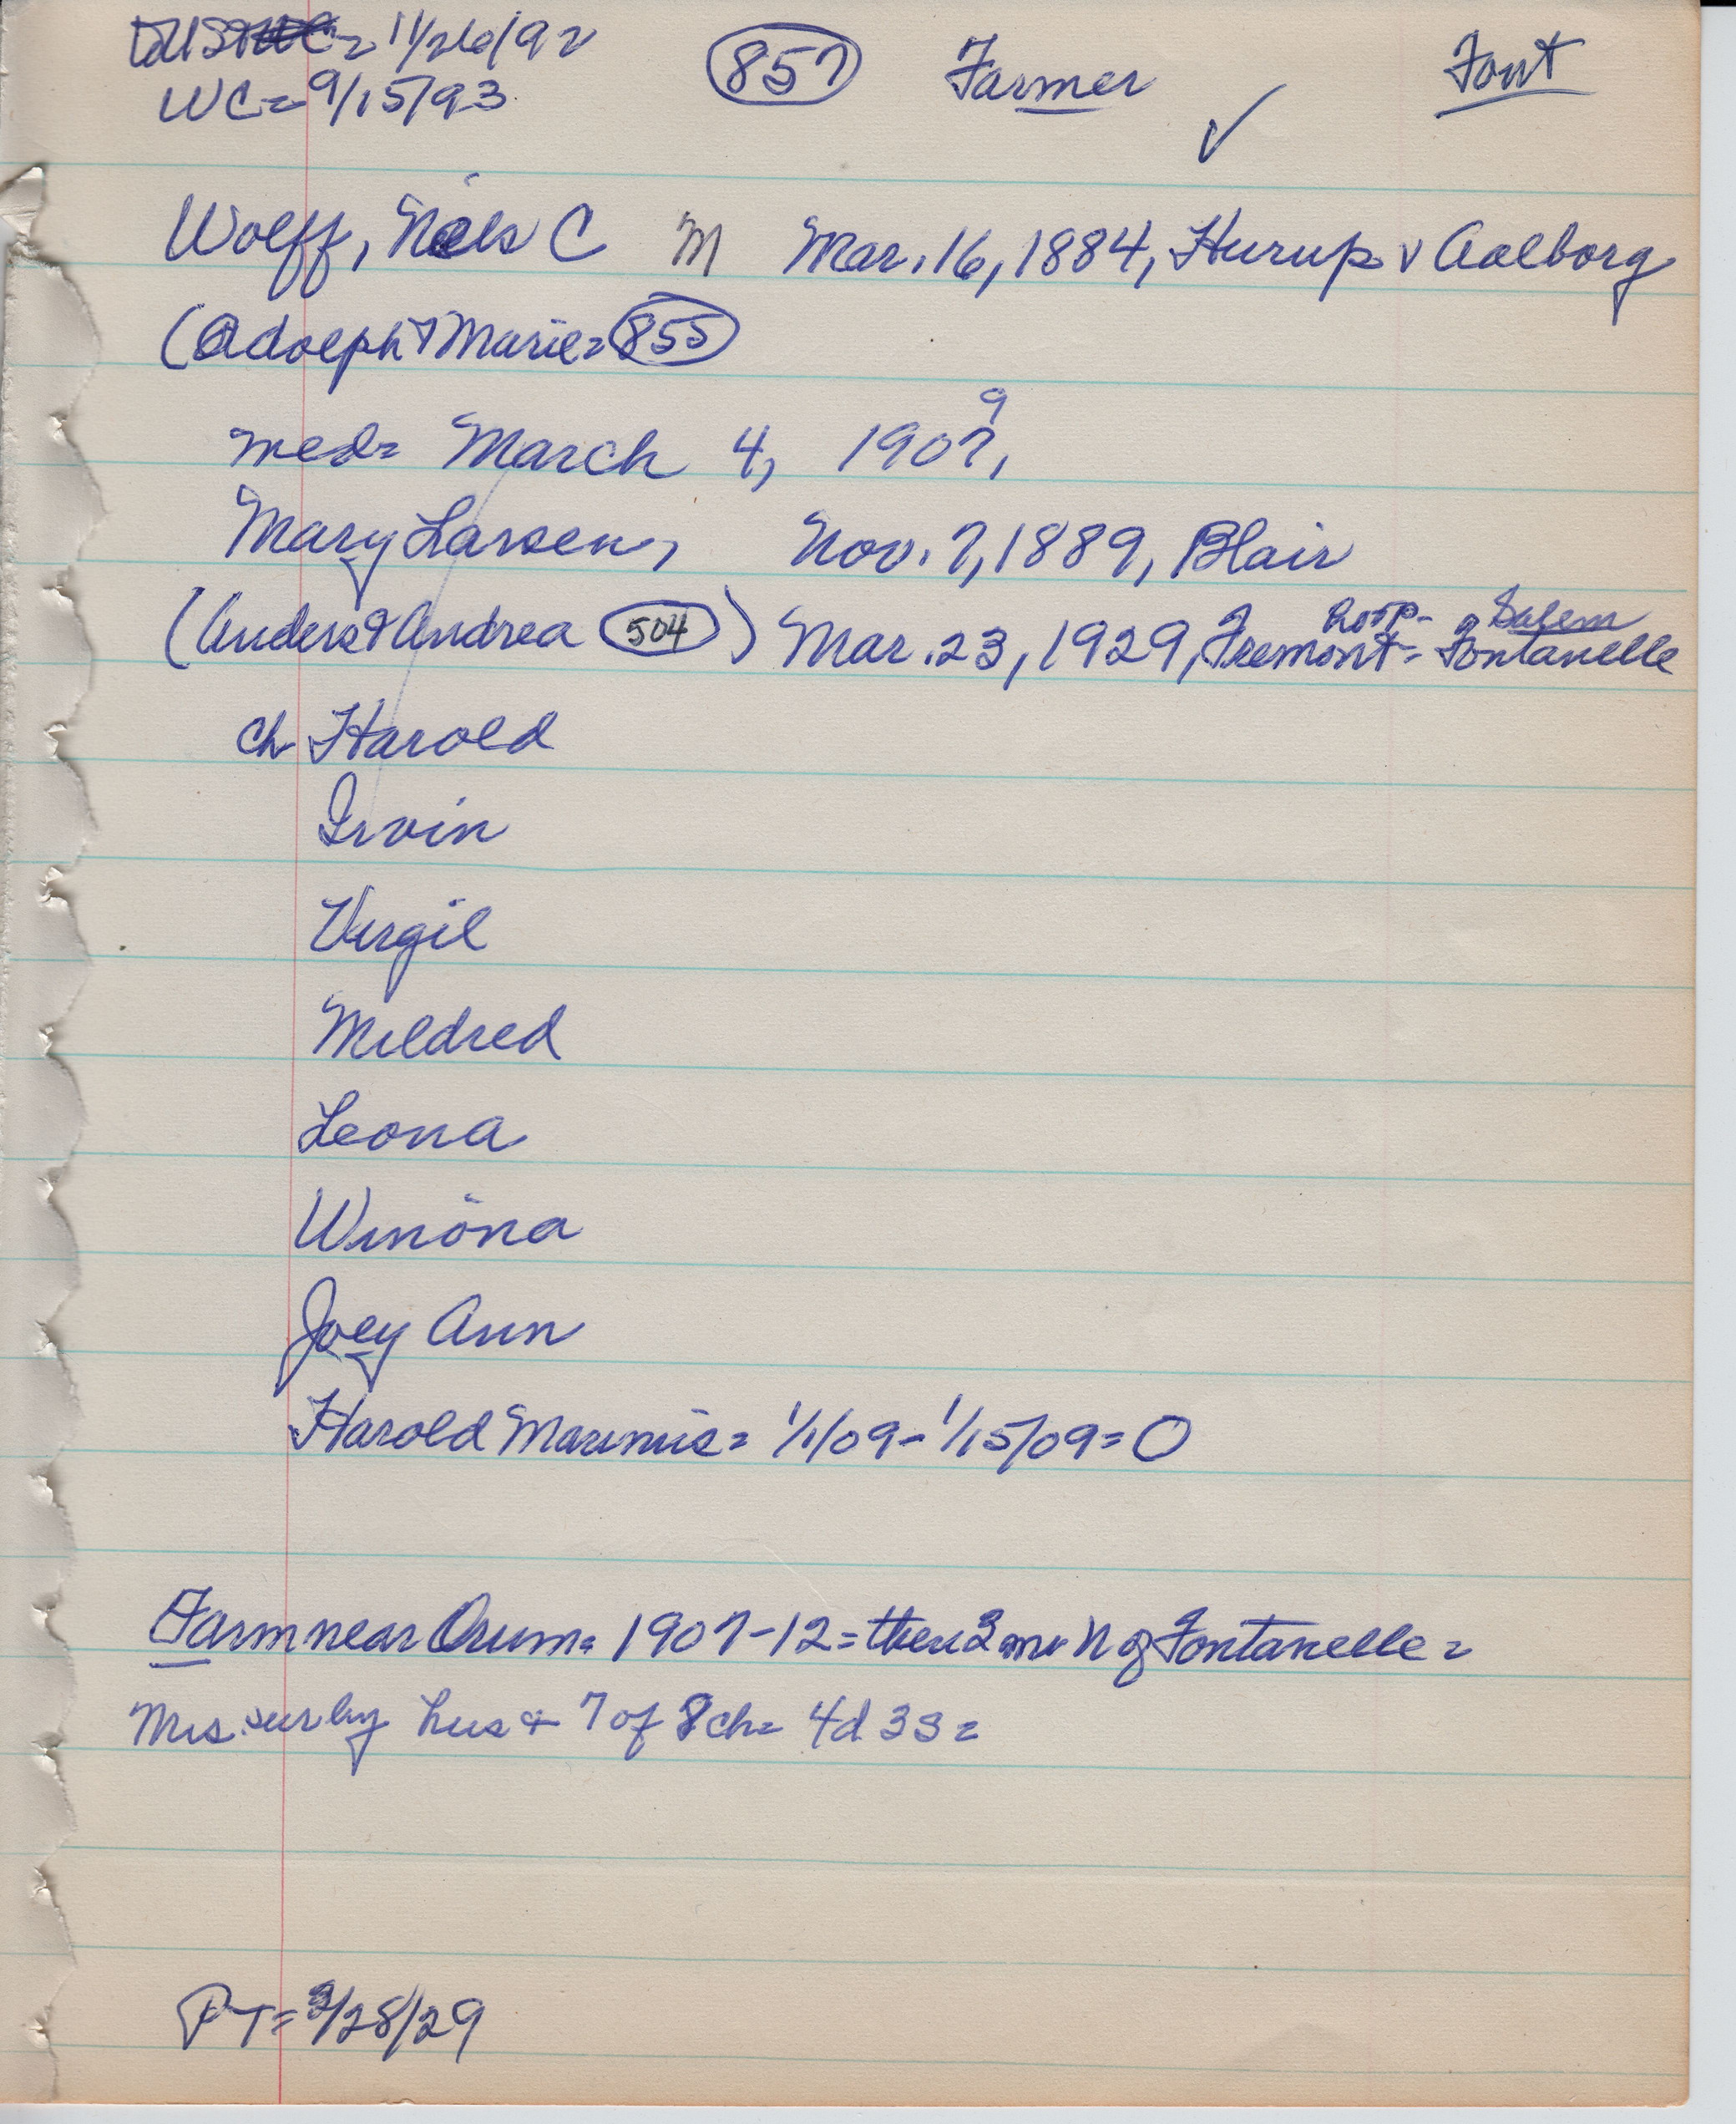 DUS = 11/26/92
WC = 9/15/93
857 Farmer ✓ Font
Wolff, Niels C M Mar. 16, 1884, Hurup v Aalborg
(Adolph & Marie = 855
med = March 4, 1907, 9
Mary Larsen, Nov. 7, 1889, Blair
(Anders & Andrea 504) Mar. 23, 1929, Fremont = Hosp - g Salem Fontanelle
ch Harold
Irvin
Virgil
Mildred
Leona
Winona
Joey Ann
Harold Marinus = 1/1/09 - 1/15/09 = 0
Farm near Orum = 1907-12 = then 3 mi N of Fontanelle =
Mrs. sur by hus & 7 of 8 ch = 4d 3s =
PT = 3/28/29